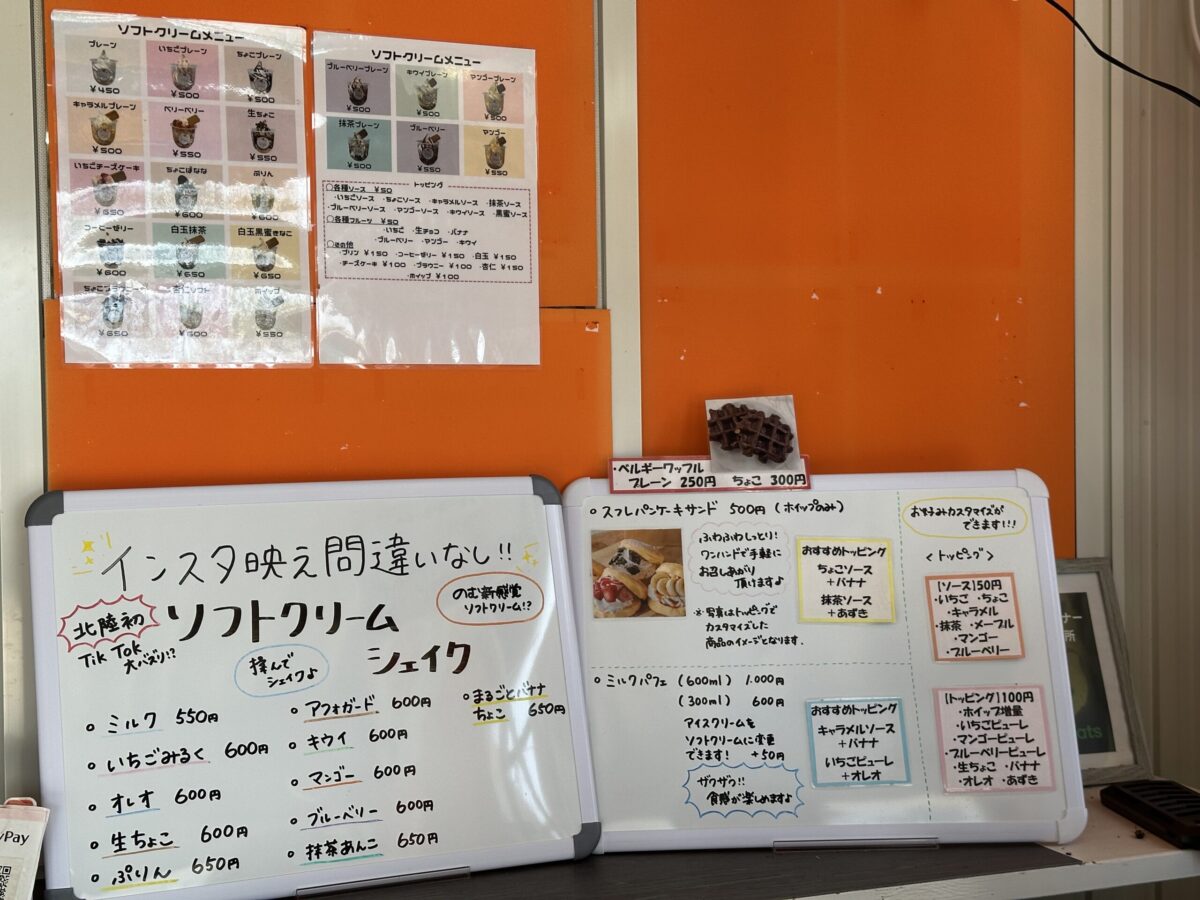 ソフトクリームメニュー
プレーン
¥450
いちごプレーン
¥500
ちょこプレーン
¥500
キャラメルプレーン
¥500
ベリーベリー
¥550
生ちょこ
¥550
いちごチーズケーキ
¥650
ちょこばなな
¥600
ぷりん
¥600
コーヒーゼリー
¥600
白玉抹茶
¥650
白玉黒蜜きなこ
¥650
¥650
杏仁ソフト
¥500
ホイップ
¥550
ソフトクリームメニュー
ブルーベリープレーン
¥500
キウイプレーン
¥500
マンゴープレーン
¥500
抹茶プレーン
¥500
ブルーベリー
¥550
マンゴー
¥550
トッピング
○各種ソース ¥50
・いちごソース ・ちょこソース ・キャラメルソース ・抹茶ソース
・ブルーベリーソース ・マンゴーソース ・キウイソース ・黒蜜ソース
○各種フルーツ ¥50
・いちご ・生チョコ ・バナナ
・ブルーベリー ・マンゴー ・キウイ
○その他
・プリン ¥150 ・コーヒーゼリー ¥150 ・白玉 ¥150
・チーズケーキ ¥100 ・ブラウニー ¥100 ・杏仁 ¥150
・ホイップ ¥100
インスタ映え間違いなし!!
北陸初
TikTok
大バズリ!?
ソフトクリーム
シェイク
のむ新感覚
ソフトクリーム!?
揉んで
シェイクよ
・ミルク 550円
・いちごみるく 600円
・オレオ 600円
・生ちょこ 600円
・ぷりん 650円
・アフォガード 600円
・キウイ 600円
・マンゴー 600円
・ブルーベリー 600円
・抹茶あんこ 650円
・まるごとバナナ
ちょこ 650円
・ベルギーワッフル
プレーン 250円 ちょこ 300円
・スフレパンケーキサンド 500円 (ホイップのみ)
ふわふわしっとり!
ワンハンドで手軽に
お召しあがり
頂けますよ
※写真はトッピングで
カスタマイズした
商品のイメージとなります.
おすすめトッピング
ちょこソース
+バナナ
抹茶ソース
+あずき
・ミルクパフェ (600ml) 1.000円
(300ml) 600円
アイスクリームを
ソフトクリームに変更
できます! +50円
ザクザク!!
食感が楽しめますよ
おすすめトッピング
キャラメルソース
+バナナ
いちごピューレ
+オレオ
お好みカスタマイズが
できます!!!
<トッピング>
[ソース]50円
・いちご ・ちょこ
・キャラメル
・抹茶 ・メープル
・マンゴー
・ブルーベリー
[トッピング]100円
・ホイップ増量
・いちごピューレ
・マンゴーピューレ
・ブルーベリーピューレ
・生ちょこ ・バナナ
・オレオ ・あずき
Pay
ナー
所
ats